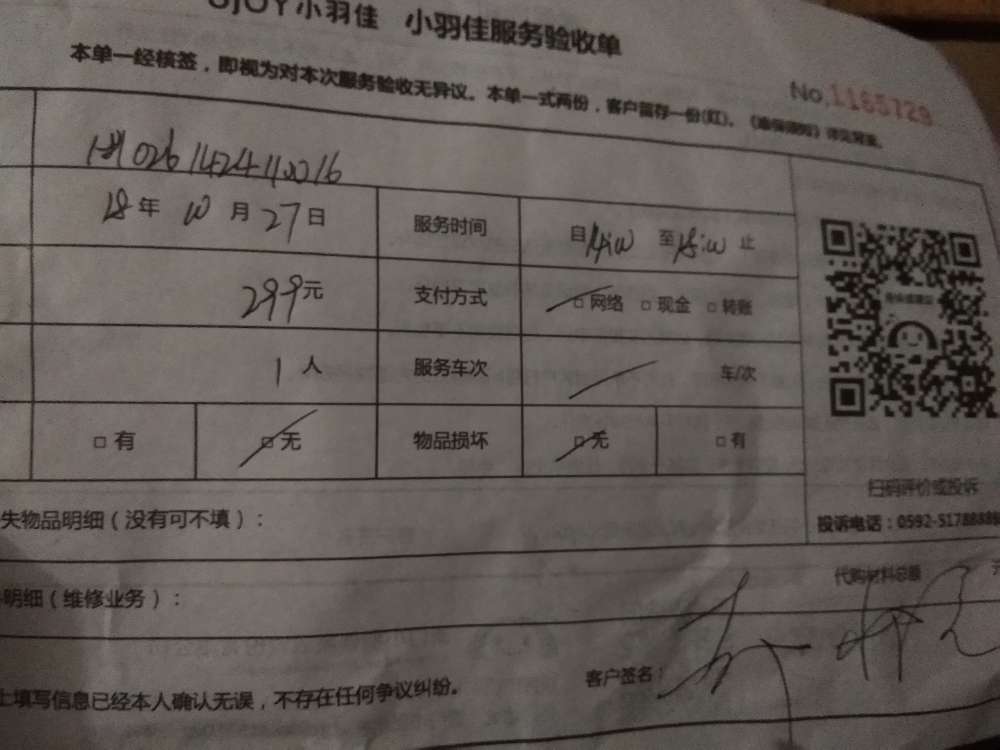 小羽佳 小羽佳服务验收单
本单一经核签，即视为对本次服务验收无异议。本单一式两份，客户留存一份(红)。
No.1165729
18年 10月27日 服务时间 自14:00 至18:00 止
299元 支付方式 □网络 □现金 □转账
1人 服务车次 车/次
□有 □无 物品损坏 □无 □有
扫码评价或投诉
失物品明细（没有可不填）：
投诉电话：0592-5178888
代购材料总额
明细（维修业务）：
客户签名：
上填写信息已经本人确认无误，不存在任何争议纠纷。